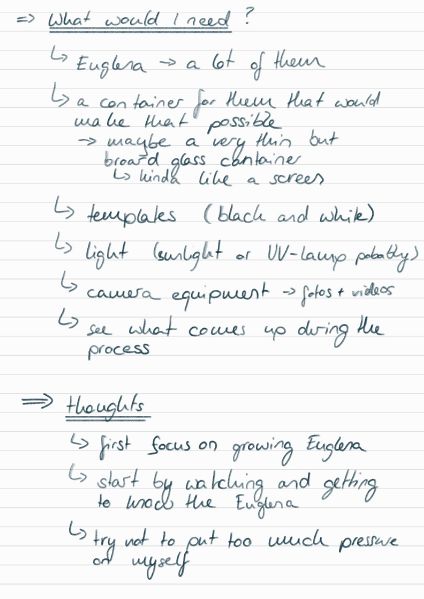 ⇒ What would I need?
↳ Euglena → a lot of them
↳ a container for them that would
make that possible
→ maybe a very thin but
broard glass container
↳ kinda like a screen
↳ templates (black and white)
↳ light (sunlight or UV-lamp probably)
↳ camera equipment → fotos + videos
↳ see what comes up during the
process
⇒ thoughts
↳ first focus on growing Euglena
↳ start by watching and getting
to know the Euglena
↳ try not to put too much pressure
on myself